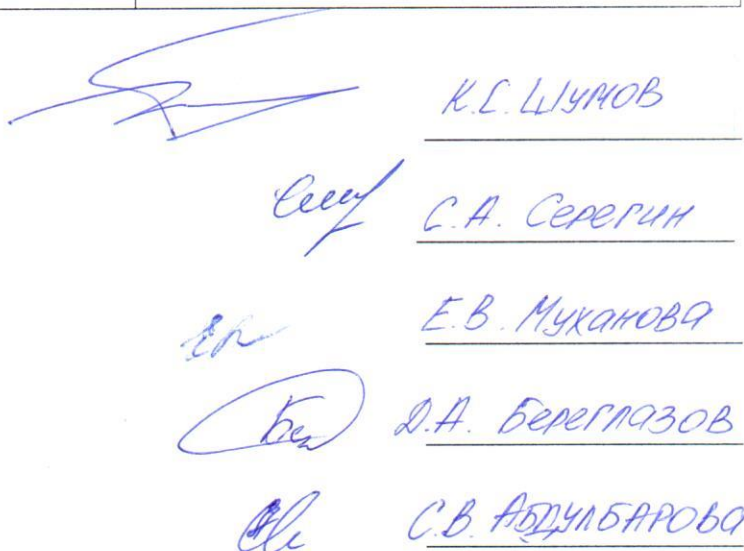 К.С. Шумов
С.А. Серегин
Е.В. Муханова
Д.А. Береглазов
С.В. Абдулбарова